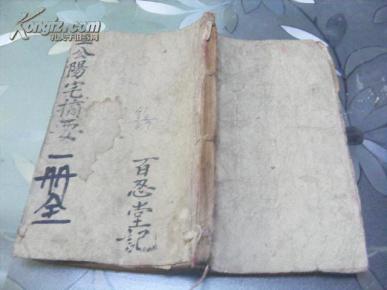 Kongfz.com
孔夫子旧书网
公陽宅摘要
一册全
百忍堂記